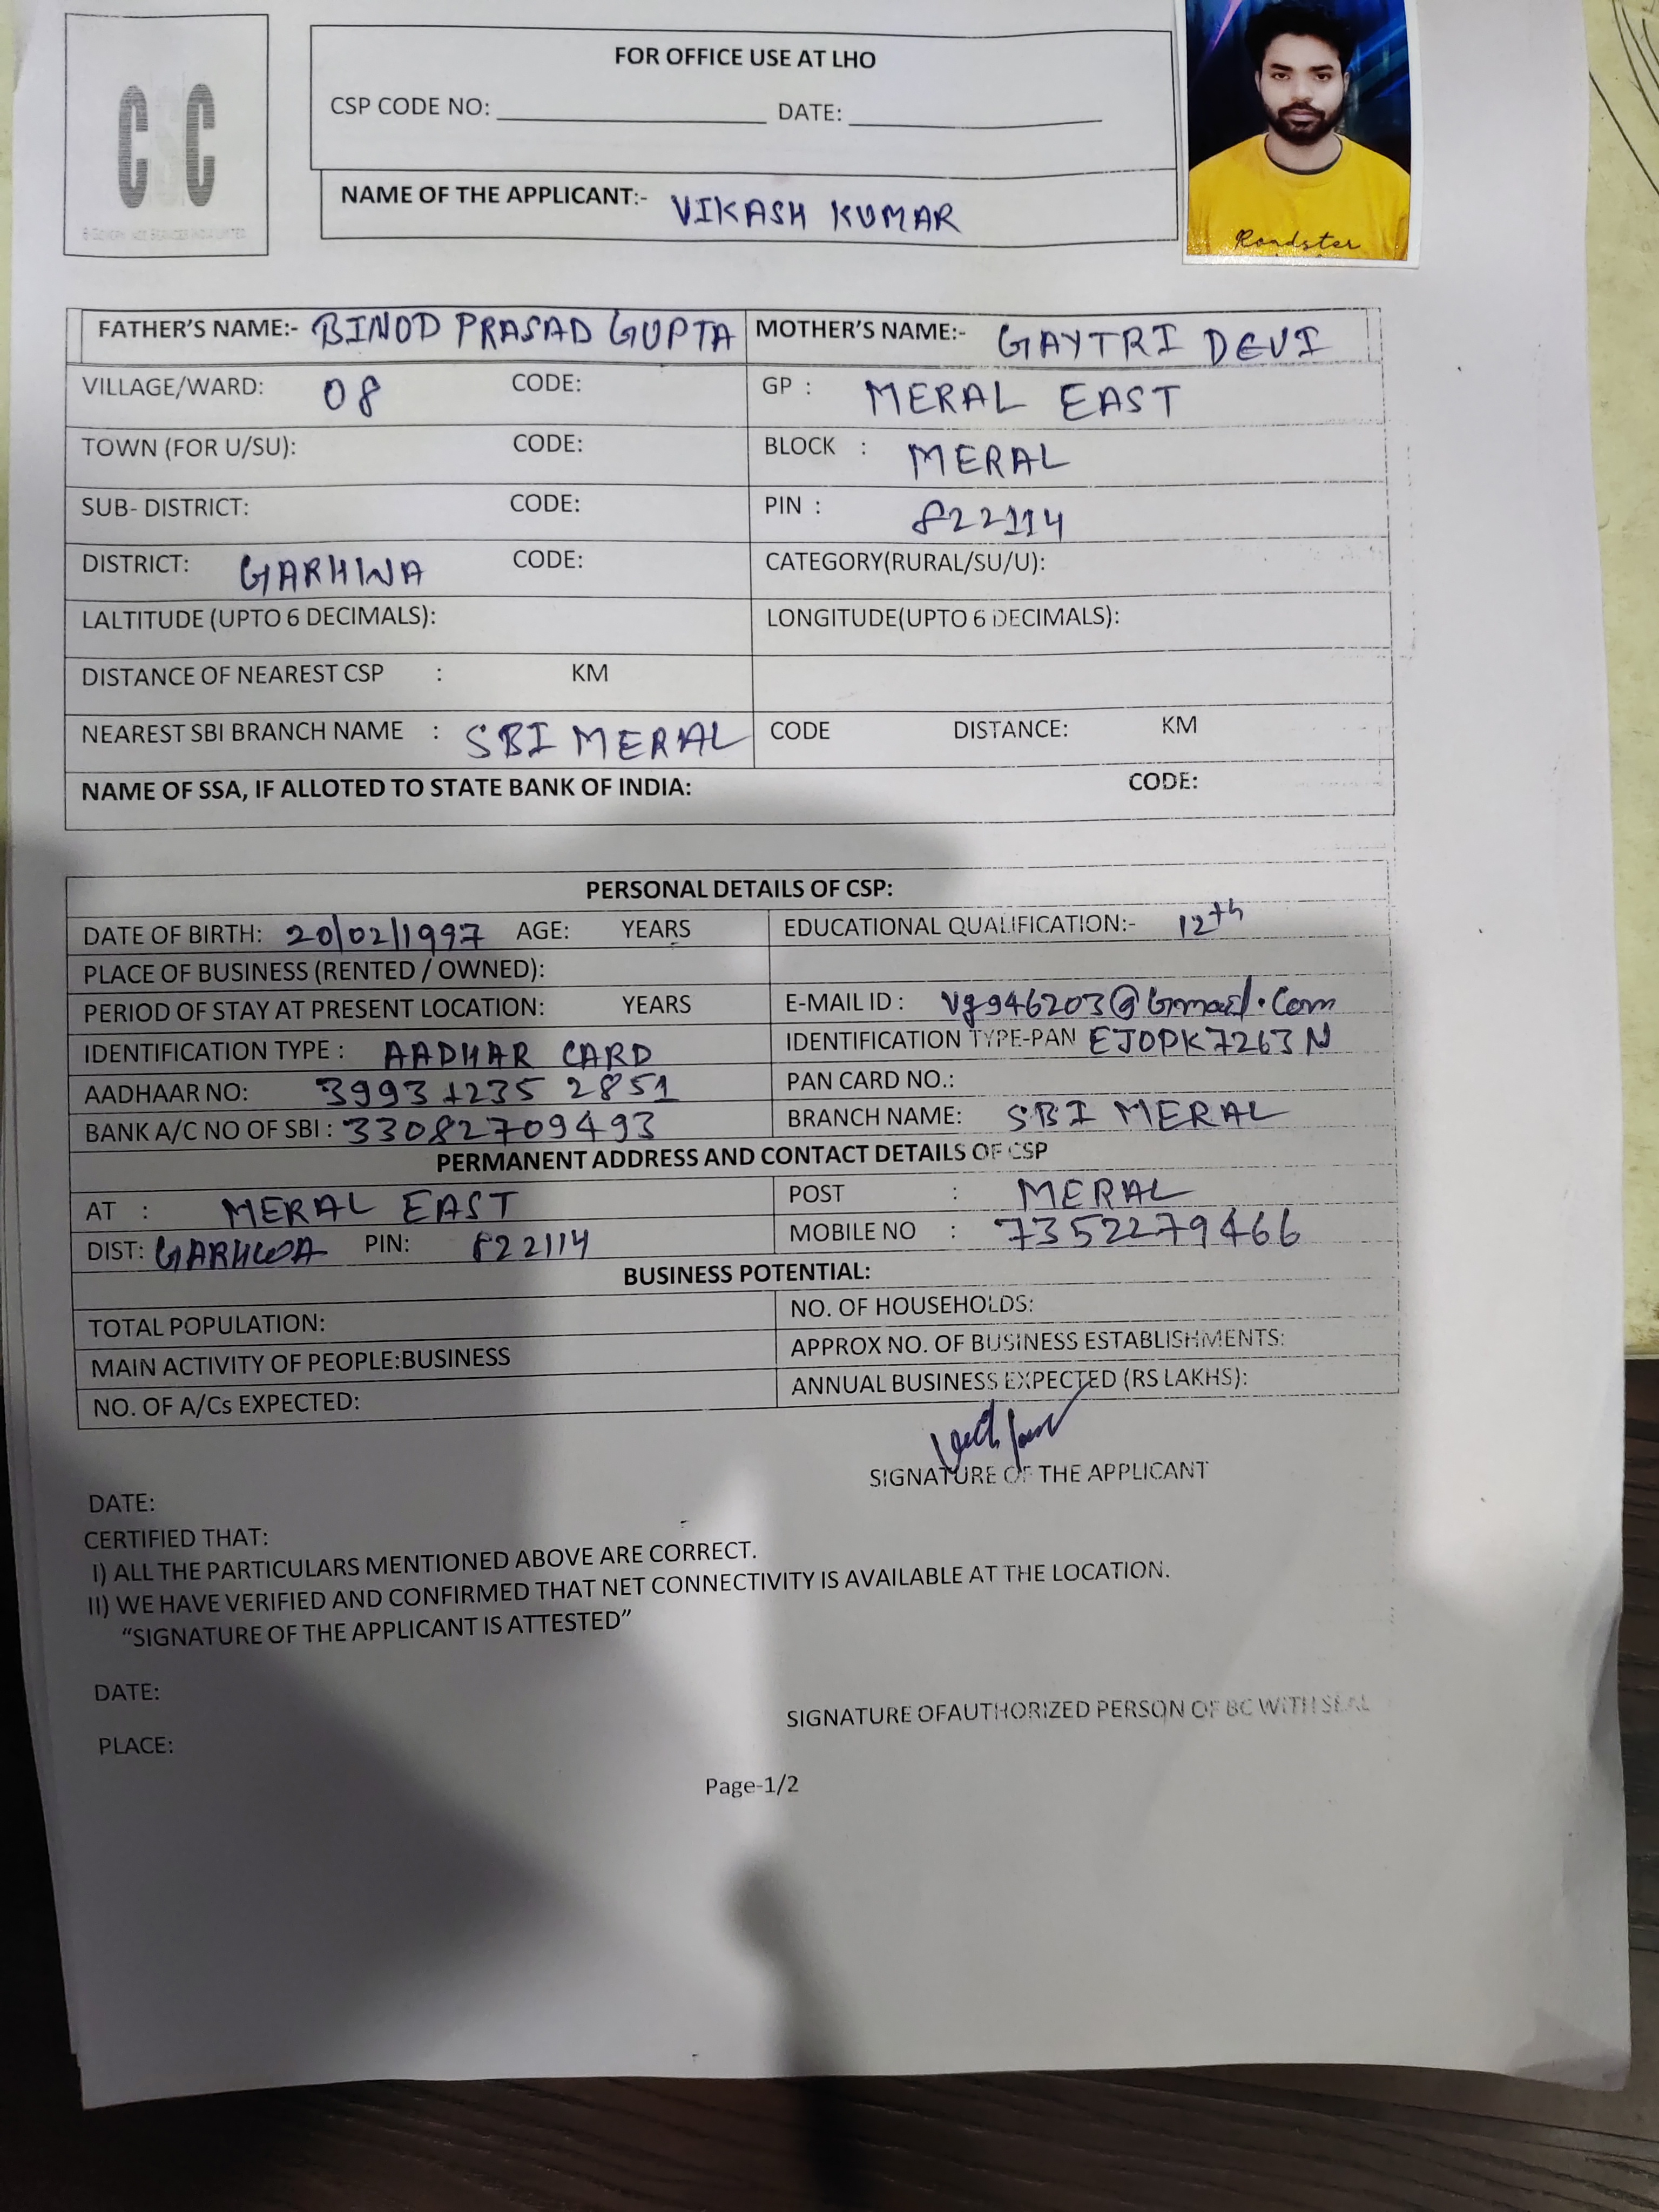 CSC
FOR OFFICE USE AT LHO
CSP CODE NO: DATE:
NAME OF THE APPLICANT:- VIKASH KUMAR
Roadster
FATHER'S NAME:- BINOD PRASAD GUPTA MOTHER'S NAME:- GAYTRI DEVI
VILLAGE/WARD: 08 CODE: GP : MERAL EAST
TOWN (FOR U/SU): CODE: BLOCK : MERAL
SUB- DISTRICT: CODE: PIN : 822114
DISTRICT: GARHWA CODE: CATEGORY(RURAL/SU/U):
LALTITUDE (UPTO 6 DECIMALS): LONGITUDE(UPTO 6 DECIMALS):
DISTANCE OF NEAREST CSP : KM
NEAREST SBI BRANCH NAME : SBI MERAL CODE DISTANCE: KM
NAME OF SSA, IF ALLOTED TO STATE BANK OF INDIA: CODE:
PERSONAL DETAILS OF CSP:
DATE OF BIRTH: 20/02/1997 AGE: YEARS EDUCATIONAL QUALIFICATION:- 12th
PLACE OF BUSINESS (RENTED / OWNED):
PERIOD OF STAY AT PRESENT LOCATION: YEARS E-MAIL ID : vg946203@Gmail.Com
IDENTIFICATION TYPE : AADHAR CARD IDENTIFICATION TYPE-PAN EJOPK7263N
AADHAAR NO: 3993 1235 2851 PAN CARD NO.:
BANK A/C NO OF SBI : 33082709493 BRANCH NAME: SBI MERAL
PERMANENT ADDRESS AND CONTACT DETAILS OF CSP
AT : MERAL EAST POST : MERAL
DIST: GARHWA PIN: 822114 MOBILE NO : 7352279466
BUSINESS POTENTIAL:
TOTAL POPULATION: NO. OF HOUSEHOLDS:
MAIN ACTIVITY OF PEOPLE:BUSINESS APPROX NO. OF BUSINESS ESTABLISHMENTS:
NO. OF A/Cs EXPECTED: ANNUAL BUSINESS EXPECTED (RS LAKHS):
SIGNATURE OF THE APPLICANT
DATE:
CERTIFIED THAT:
I) ALL THE PARTICULARS MENTIONED ABOVE ARE CORRECT.
II) WE HAVE VERIFIED AND CONFIRMED THAT NET CONNECTIVITY IS AVAILABLE AT THE LOCATION.
"SIGNATURE OF THE APPLICANT IS ATTESTED"
DATE:
SIGNATURE OFAUTHORIZED PERSON OF BC WITH SEAL
PLACE:
Page-1/2